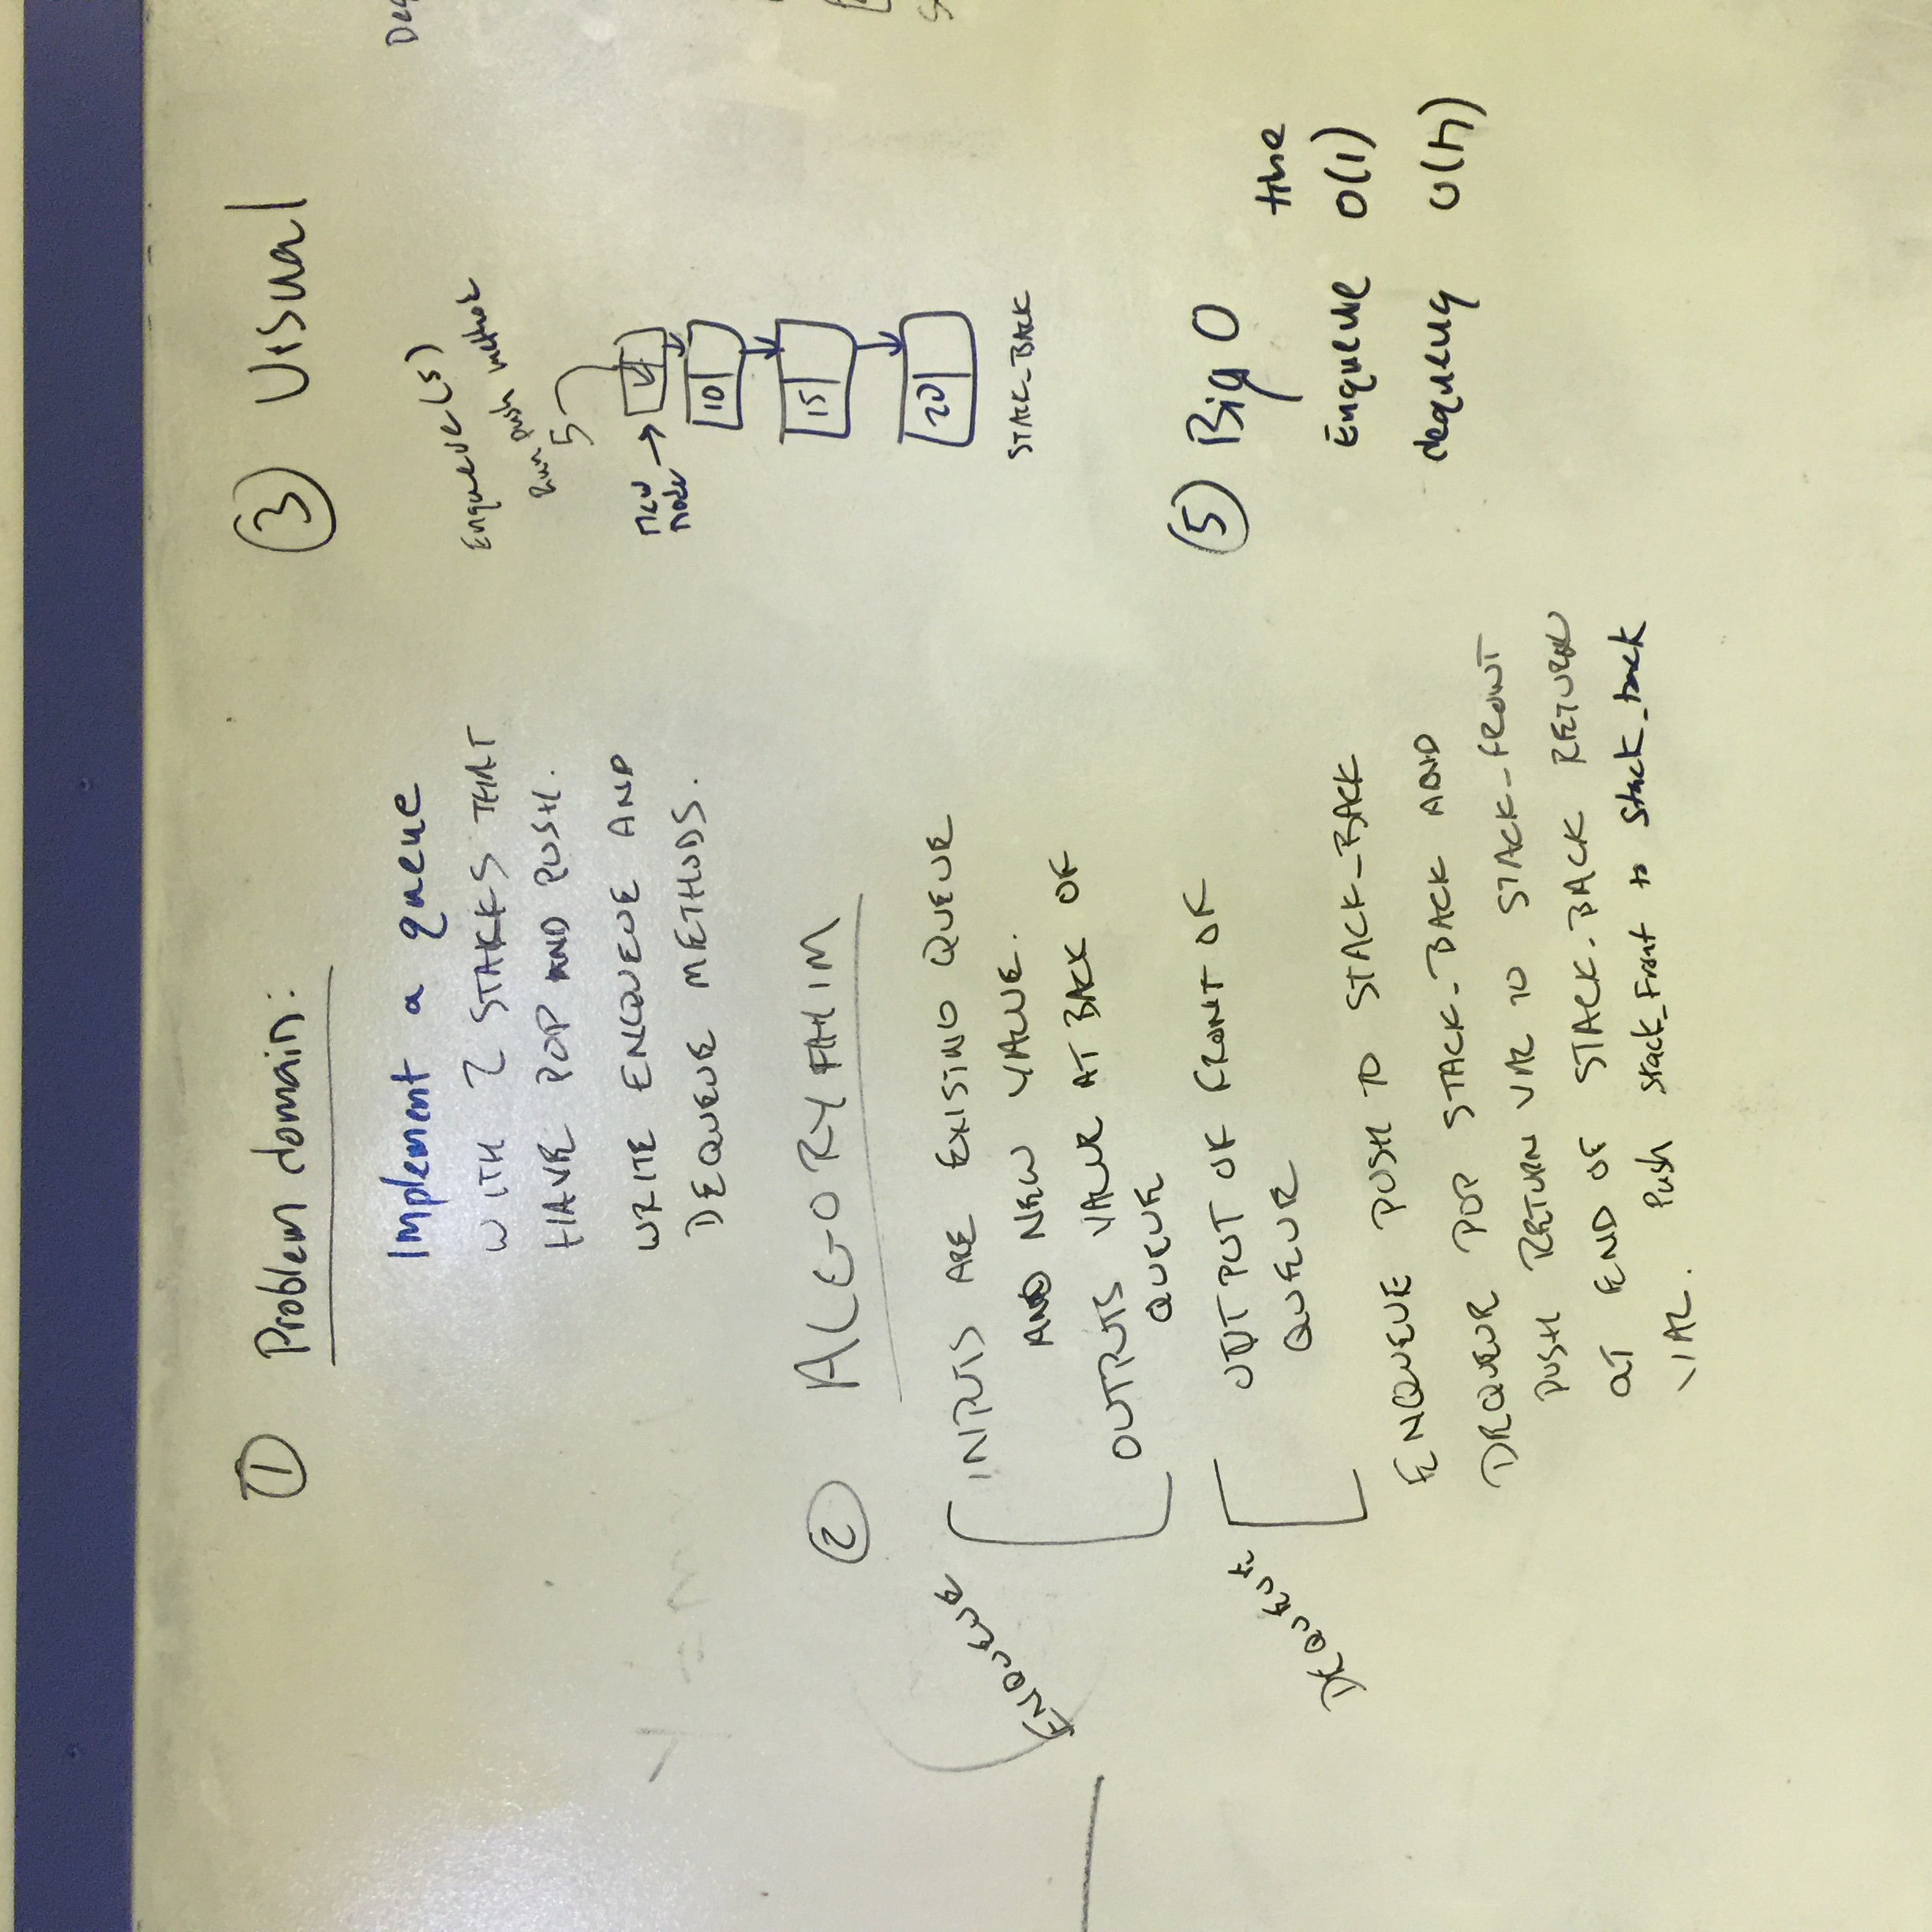 ① Problem domain:
Implement a queue
WITH 2 STAKKS THAT
HAVE POP AND PUSH.
WRITE ENQUEUE AND
DEQUEUE METHODS.
② ALGORYTHIM
ENQUEUE
INPUTS ARE EXISTING QUEUE
AND NEW VALUE.
OUTPUTS VALUE AT BACK OF
QUEUE
DEQUEUE
OUTPUT OF FRONT OF
QUEUE
ENQUEUE PUSH TO STACK_BACK
DEQUEUE POP STACK_BACK AND
PUSH RETURN VAL TO STACK_FRONT
AT END OF STACK_BACK RETURN
VAL. Push Stack_Front to Stack_back
③ Visual
Enqueue(5)
Run push method
5
New
node
10
15
20
STACK_BACK
⑤ Big O
time
Enqueue O(1)
dequeue O(n)